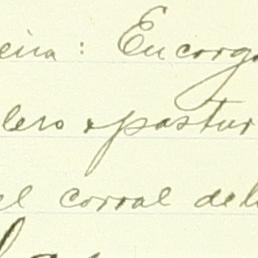 eira: Encorga
lero apastur
el corral del